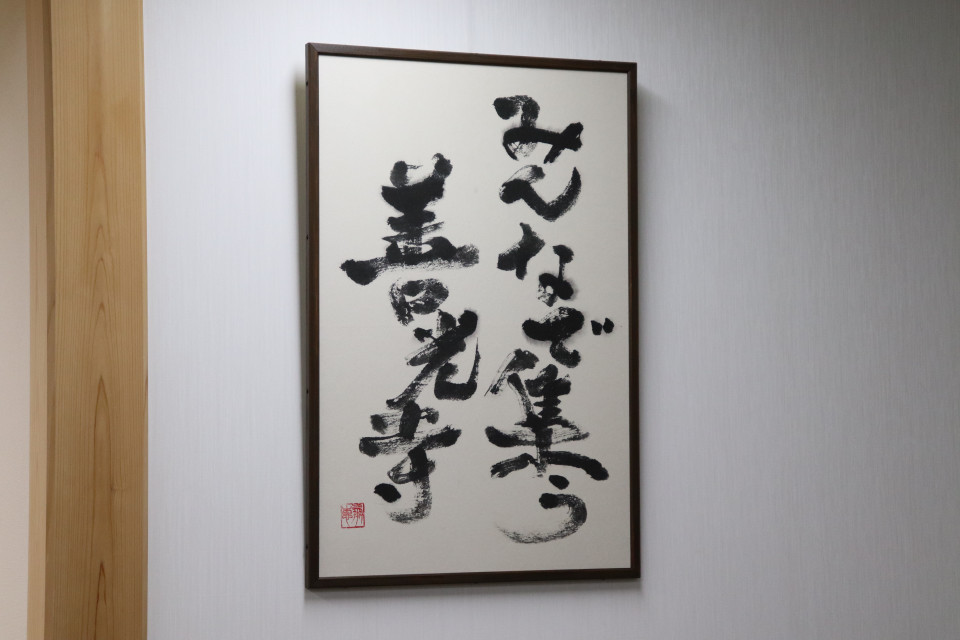 みんなで集う
善光寺